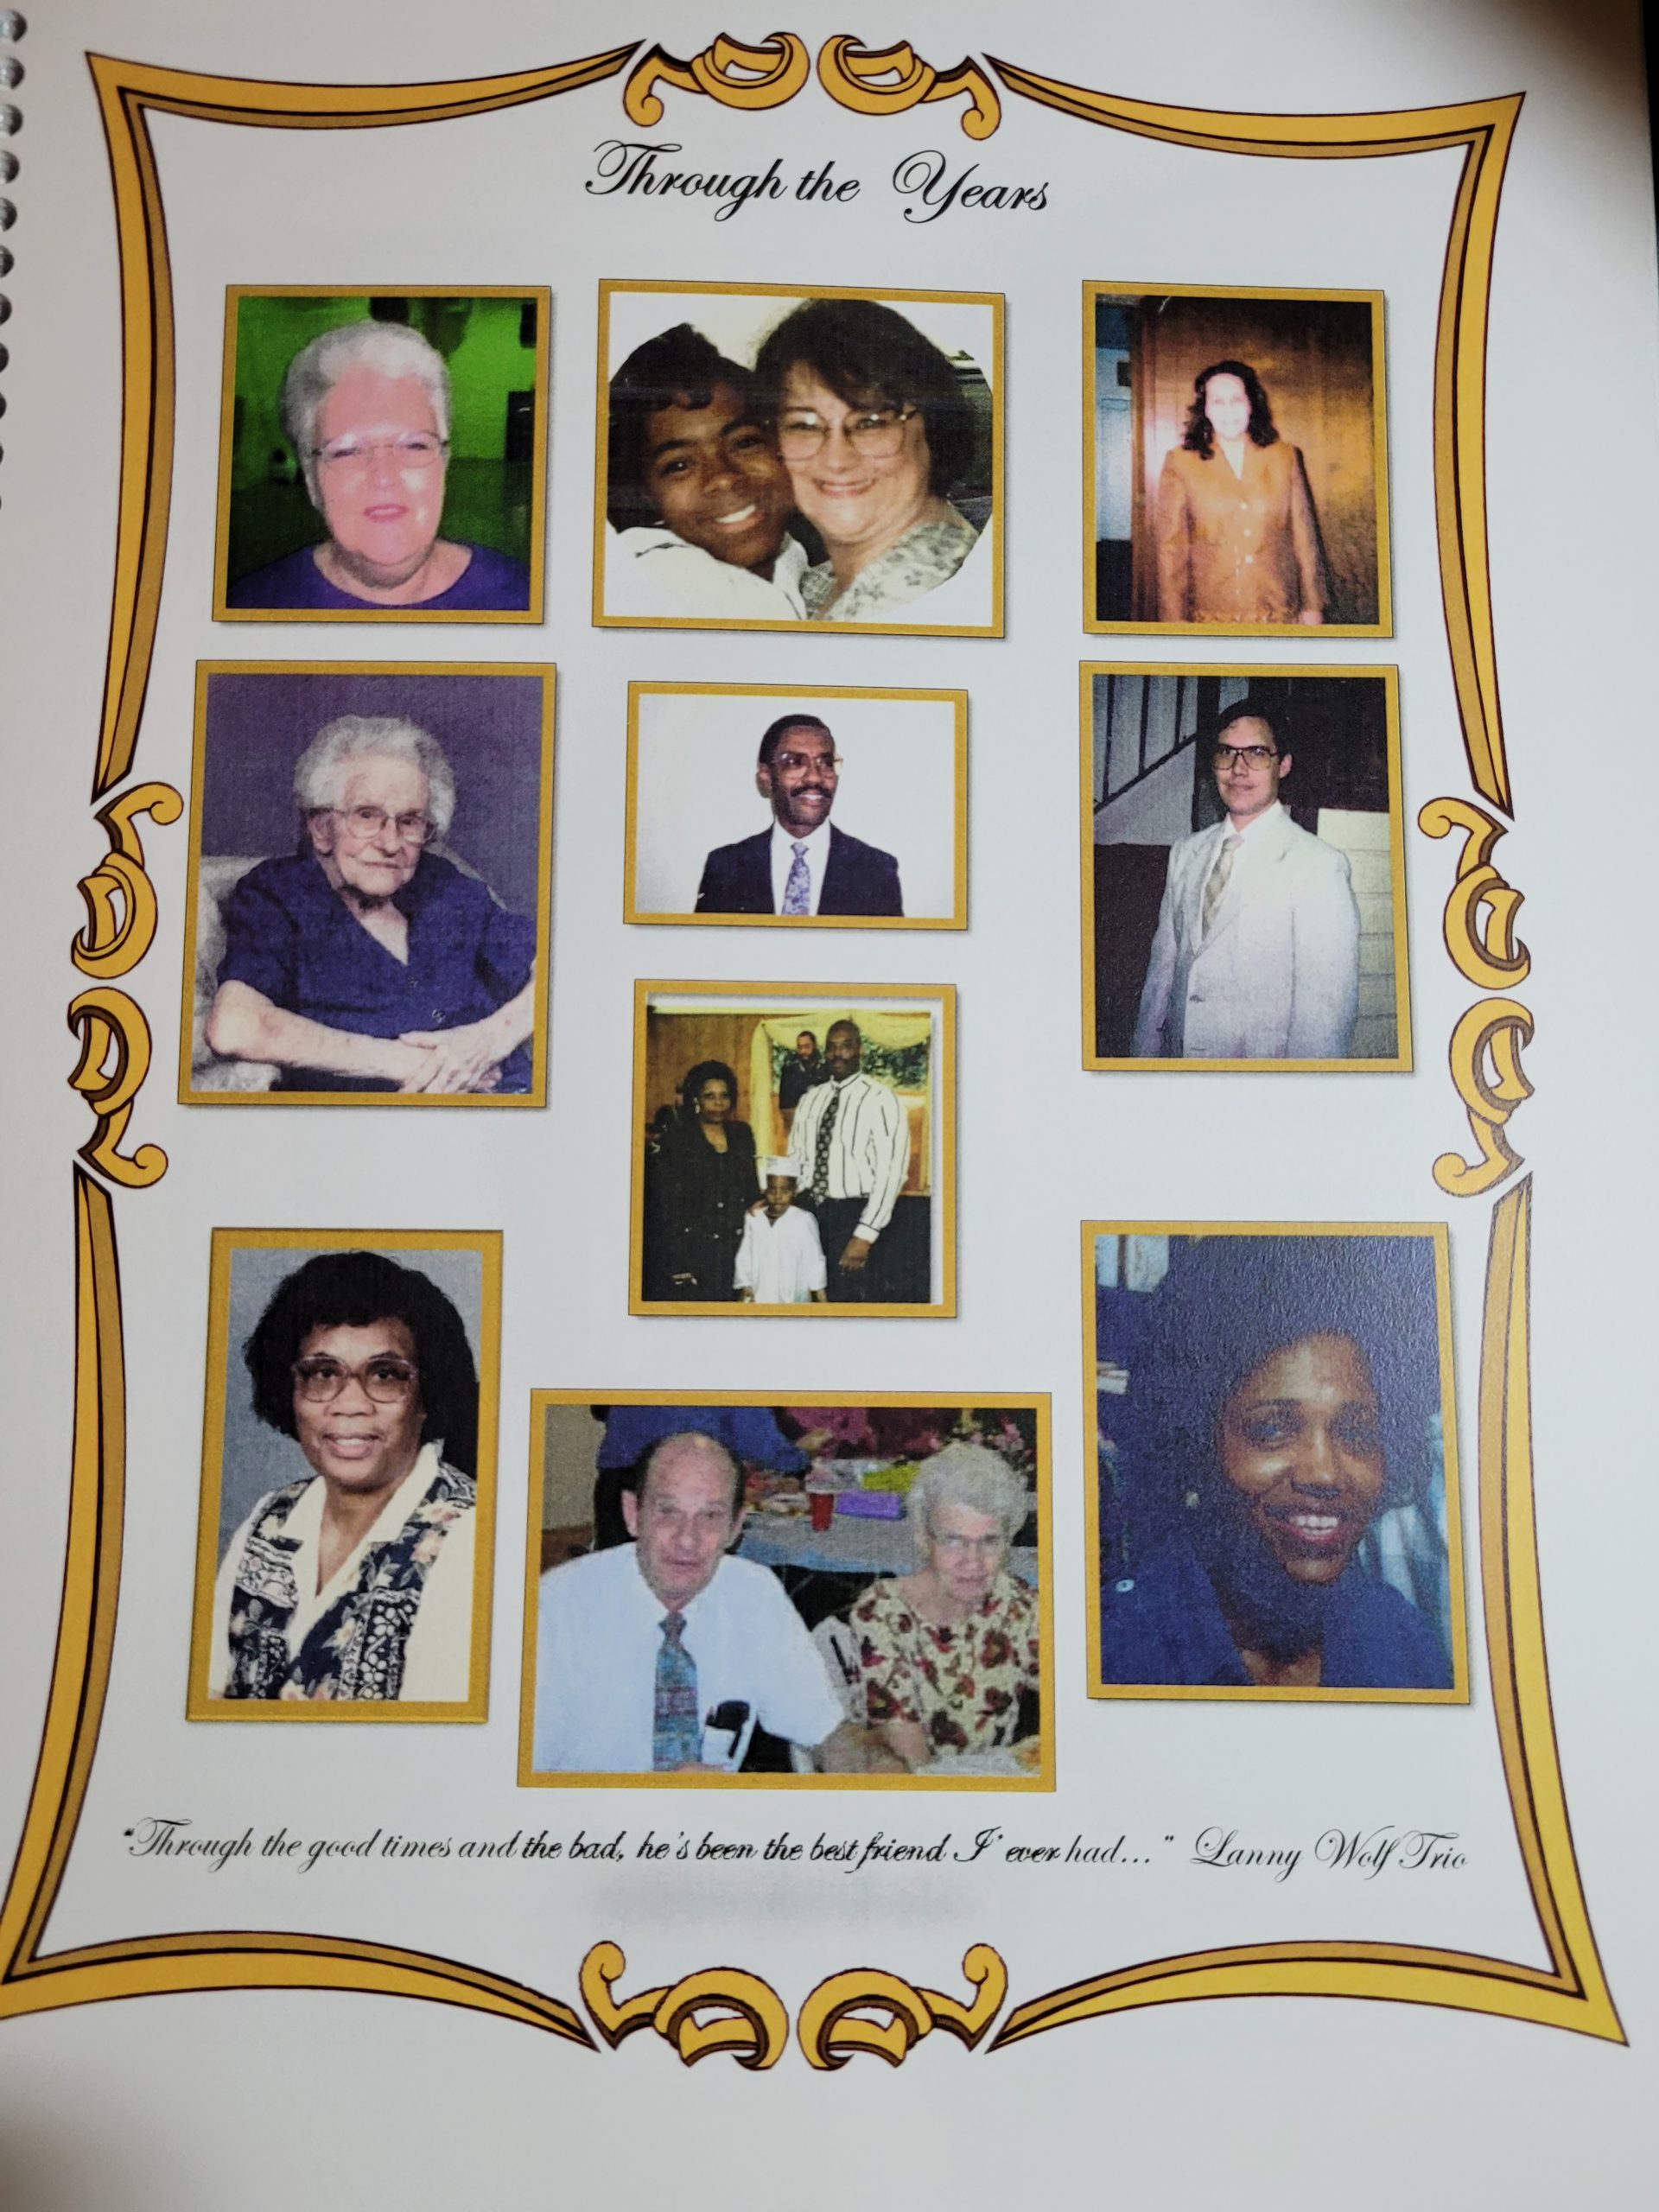 Through the Years
"Through the good times and the bad, he's been the best friend I' ever had..." Lanny Wolf Trio